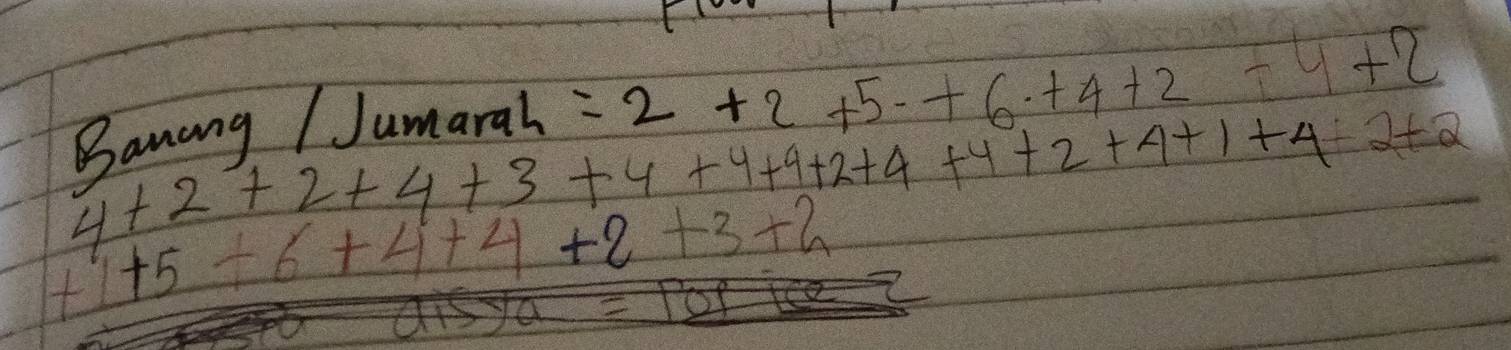 Banang / Jumarah = 2 + 2 + 5 + 6 + 4 + 2 + 4 + 2
4 + 2 + 2 + 4 + 3 + 4 + 4 + 4 + 2 + 4 + 4 + 2 + 4 + 1 + 4 + 2 + 2
+ 1 + 5 + 6 + 4 + 4 + 2 + 3 + 2